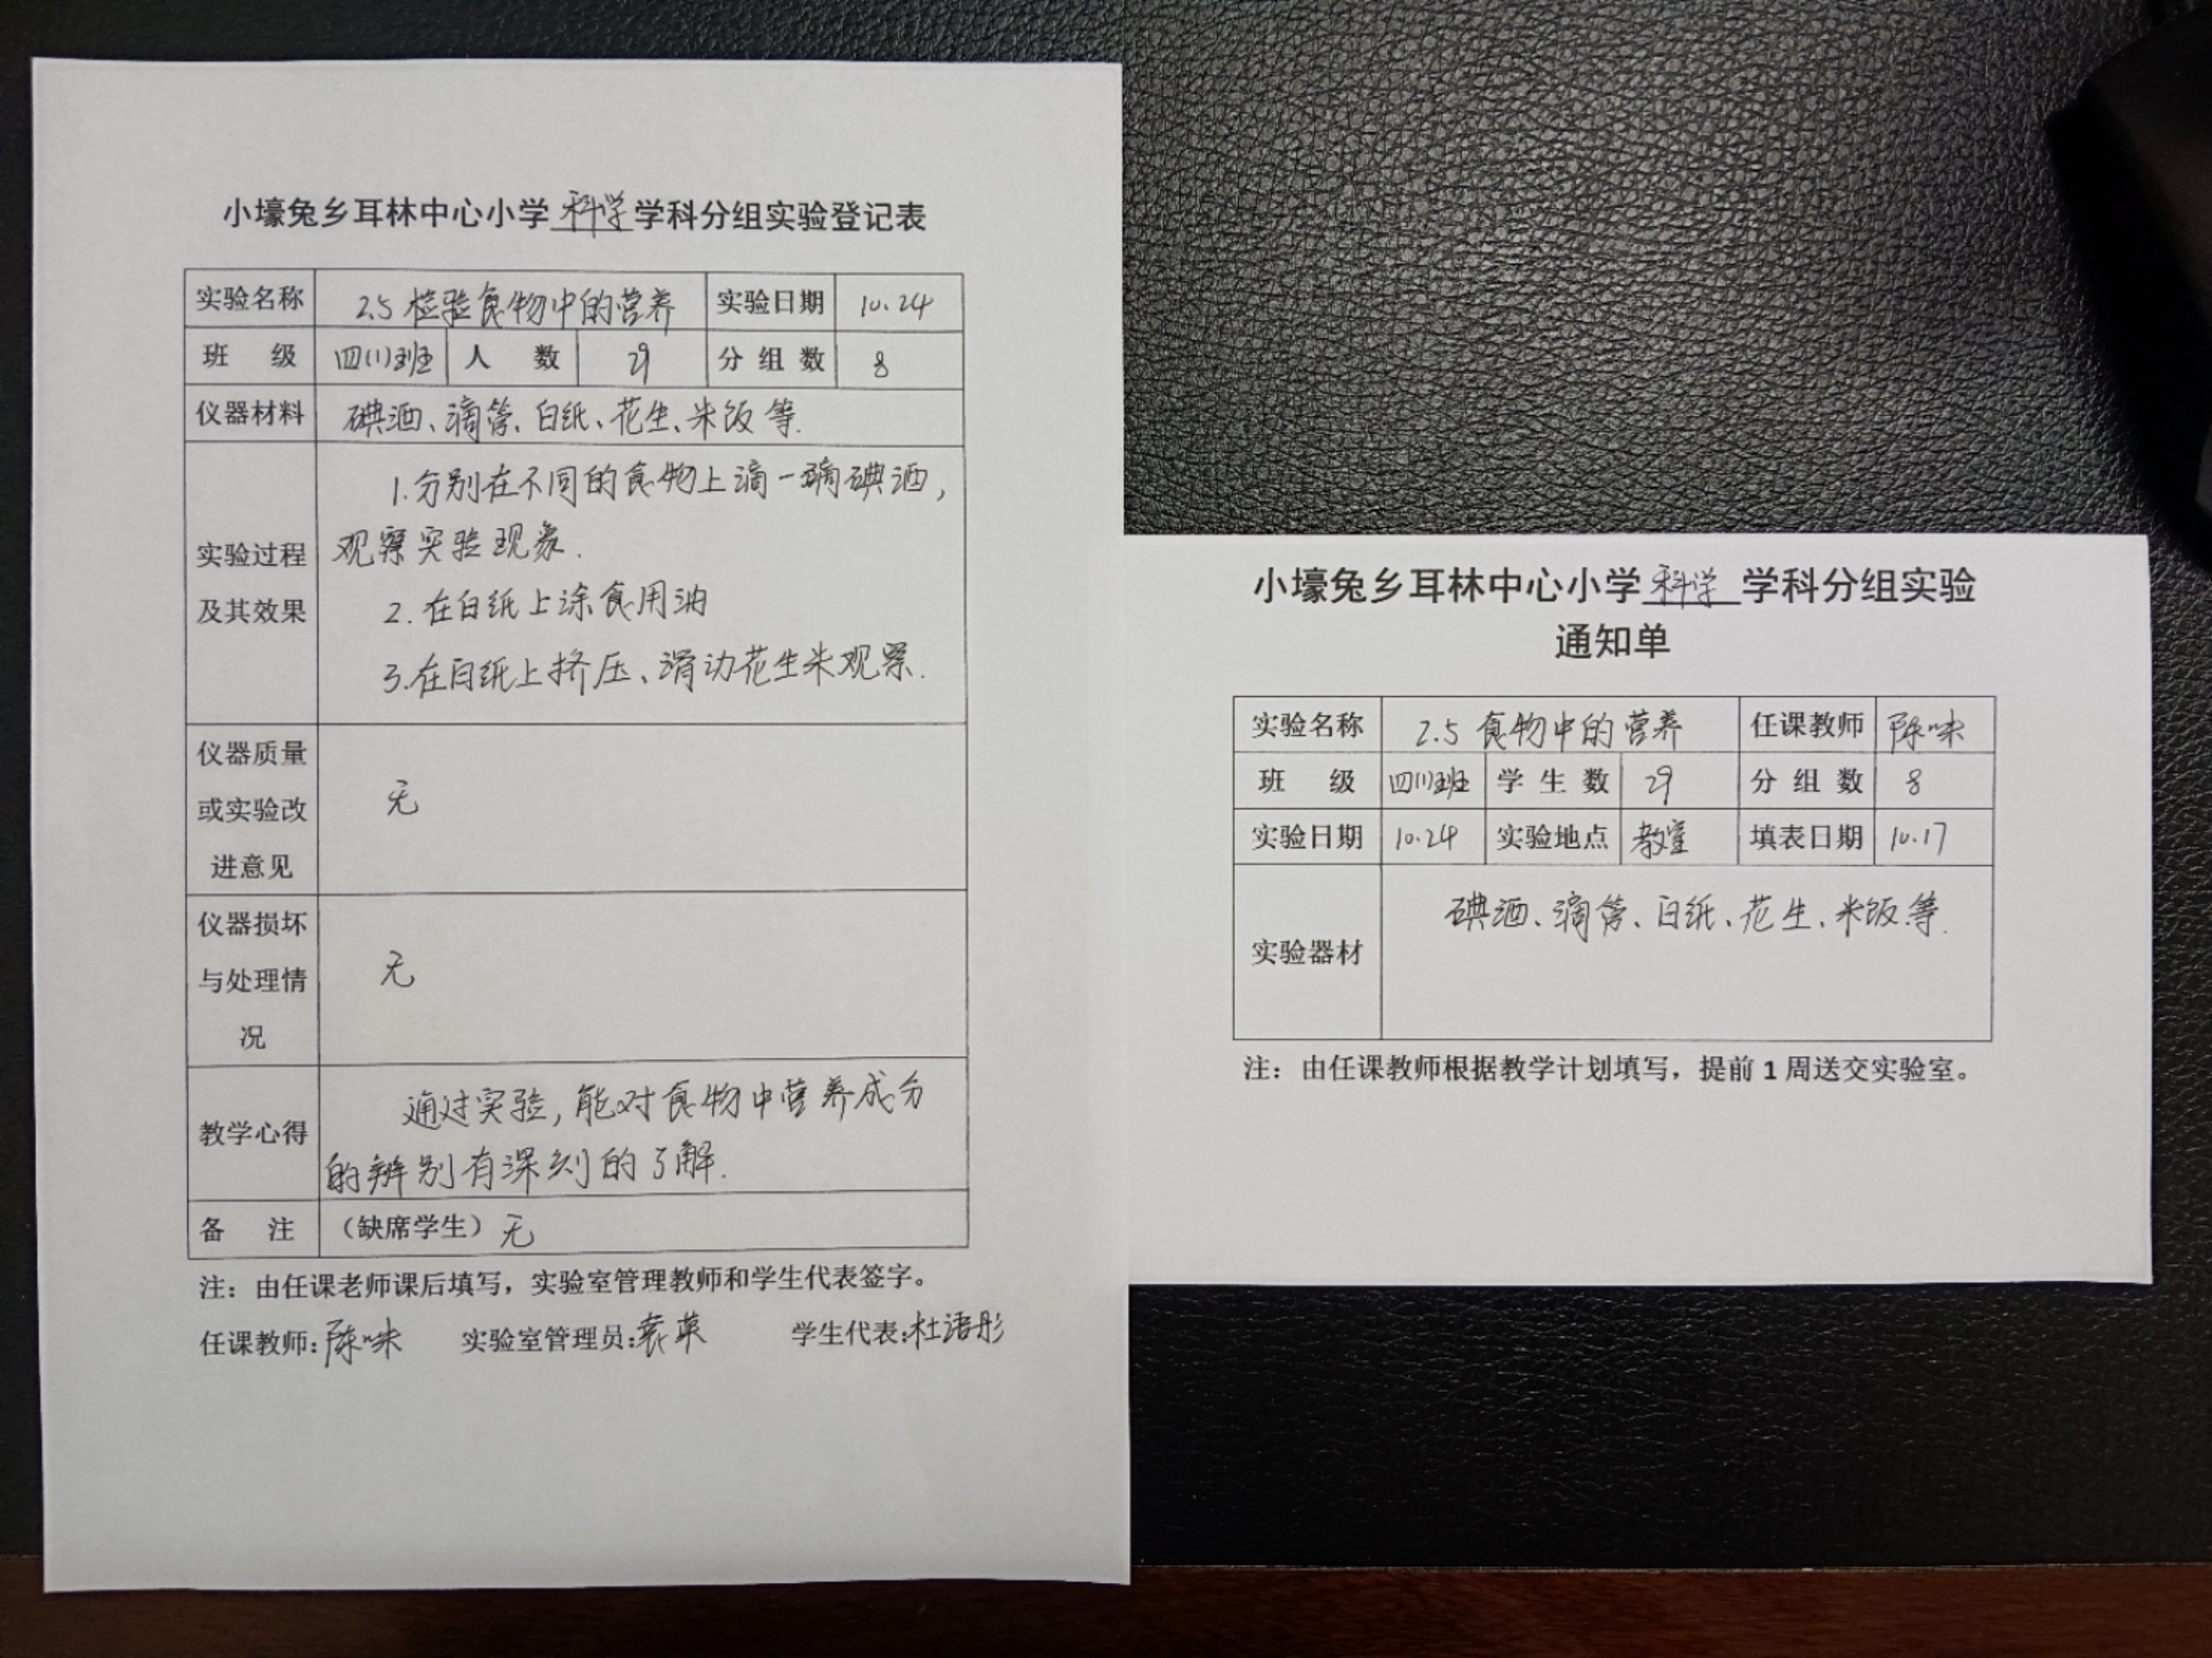 小壕兔乡耳林中心小学科学学科分组实验登记表
实验名称 2.5 检验食物中的营养 实验日期 10.24
班 级 四(1)班 人 数 29 分组数 8
仪器材料 碘酒、滴管、白纸、花生、米饭等.
实验过程及其效果
1.分别在不同的食物上滴一滴碘酒,
观察实验现象.
2.在白纸上涂食用油
3.在白纸上挤压、滑动花生米观察.
仪器质量或实验改进意见 无
仪器损坏与处理情况 无
教学心得
通过实验,能对食物中营养成分
的辨别有深刻的了解.
备 注 （缺席学生）无
注：由任课老师课后填写，实验室管理教师和学生代表签字。
任课教师:陈味 实验室管理员:袁英 学生代表:杜语彤
小壕兔乡耳林中心小学科学学科分组实验
通知单
实验名称 2.5 食物中的营养 任课教师 陈味
班 级 四(1)班 学生数 29 分组数 8
实验日期 10.24 实验地点 教室 填表日期 10.17
实验器材 碘酒、滴管、白纸、花生、米饭等.
注：由任课教师根据教学计划填写，提前 1 周送交实验室。